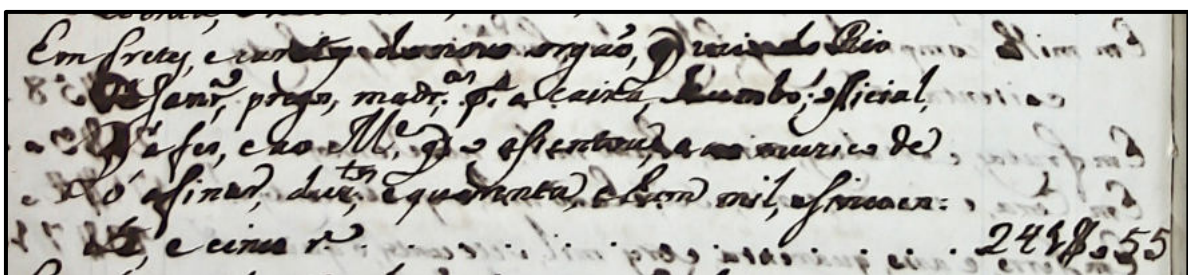 Em fretes, e carretos do novo orgaõ, q̃ veio do Rio
de Janr.º, pregos, madr.as p.ª a caixa, chumbo, official,
q̃ a fes, e ao M.e, q̃ o asentou, e ao muzico de
o afinar, duz.tos, e quarenta, e hum mil, e sincoen:
ta, e cinco r.s 241$055